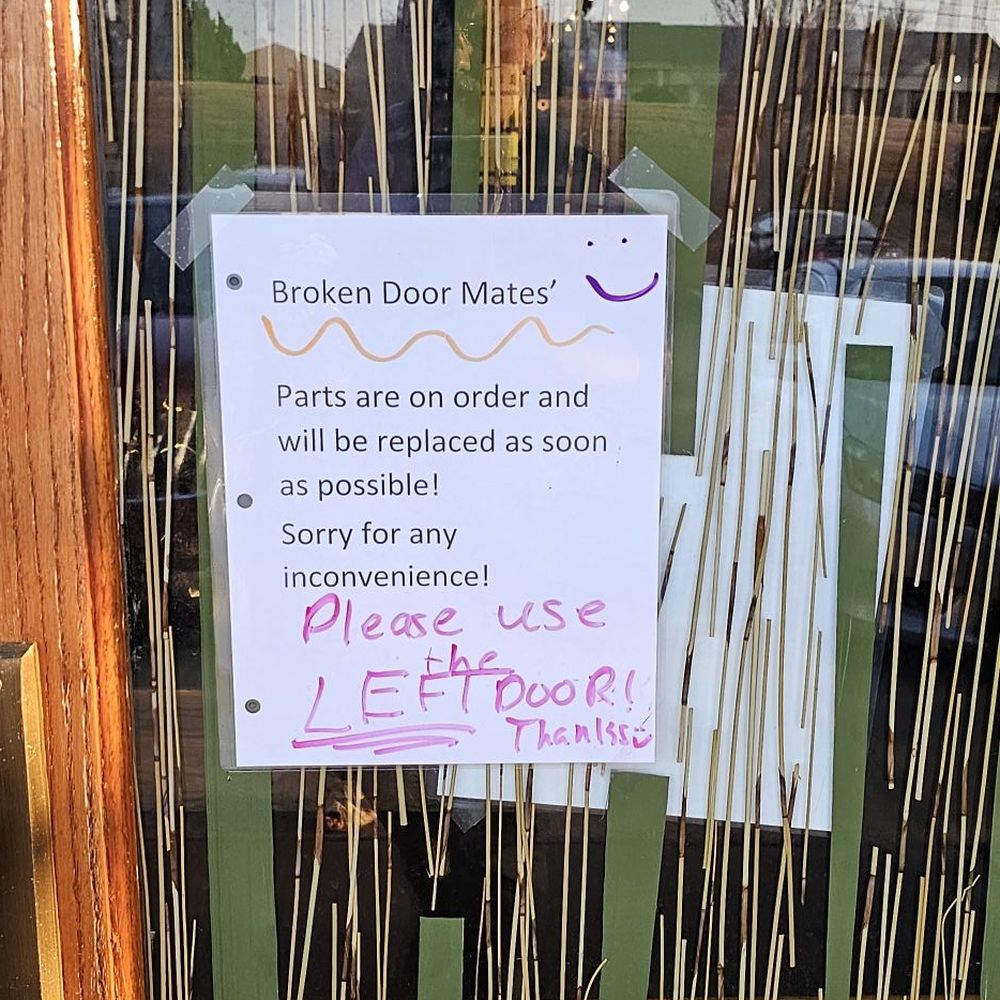 Broken Door Mates’
Parts are on order and
will be replaced as soon
as possible!
Sorry for any
inconvenience!
Please use
the
LEFT DOOR!
Thanks